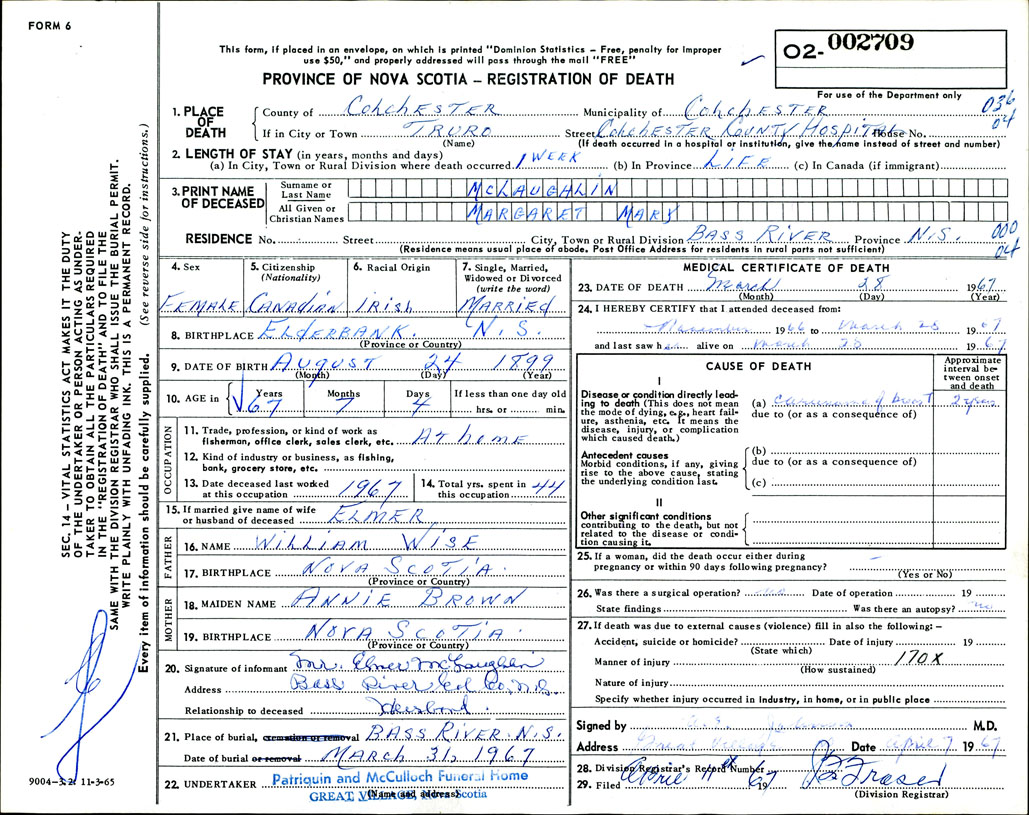 FORM 6
This form, if placed in an envelope, on which is printed "Dominion Statistics – Free, penalty for improper
use $50," and properly addressed will pass through the mail "FREE"
PROVINCE OF NOVA SCOTIA – REGISTRATION OF DEATH
O2- 002709
For use of the Department only
036
04
1. PLACE OF DEATH
County of COLCHESTER Municipality of COLCHESTER
If in City or Town TRURO Street COLCHESTER COUNTY HOSPITAL House No.
(Name) (If death occurred in a hospital or institution, give the name instead of street and number)
2. LENGTH OF STAY (in years, months and days)
(a) In City, Town or Rural Division where death occurred 1 WEEK (b) In Province LIFE (c) In Canada (if immigrant)
3. PRINT NAME OF DECEASED
Surname or Last Name MCLAUGHLIN
All Given or Christian Names MARGARET MARY
RESIDENCE No. Street City, Town or Rural Division BASS RIVER Province N.S.
000
04
(Residence means usual place of abode. Post Office Address for residents in rural parts not sufficient)
4. Sex FEMALE
5. Citizenship (Nationality) CANADIAN
6. Racial Origin IRISH
7. Single, Married, Widowed or Divorced (write the word) MARRIED
8. BIRTHPLACE ELDERBANK. N.S.
(Province or Country)
9. DATE OF BIRTH AUGUST 24 1899
(Month) (Day) (Year)
10. AGE in Years 67 Months 7 Days 4 If less than one day old hrs. or min.
OCCUPATION
11. Trade, profession, or kind of work as fisherman, office clerk, sales clerk, etc. AT HOME
12. Kind of industry or business, as fishing, bank, grocery store, etc.
13. Date deceased last worked at this occupation 1967
14. Total yrs. spent in this occupation 44
15. If married give name of wife or husband of deceased ELMER
FATHER
16. NAME WILLIAM WISE
17. BIRTHPLACE NOVA SCOTIA.
(Province or Country)
MOTHER
18. MAIDEN NAME ANNIE BROWN
19. BIRTHPLACE NOVA SCOTIA.
(Province or Country)
20. Signature of informant Mr. Elmer McLaughlin
Address Bass River Col. Co, N.S.
Relationship to deceased Husband.
21. Place of burial, cremation or removal BASS RIVER. N.S.
Date of burial or removal MARCH 31, 1967
22. UNDERTAKER Patriquin and McCulloch Funeral Home
GREAT VILLAGE, Nova Scotia
(Name and address)
MEDICAL CERTIFICATE OF DEATH
23. DATE OF DEATH March 28 1967
(Month) (Day) (Year)
24. I HEREBY CERTIFY that I attended deceased from:
November 1966 to March 28 1967
and last saw her alive on March 28 1967
CAUSE OF DEATH
Approximate interval between onset and death
I
Disease or condition directly leading to death (This does not mean the mode of dying, e.g., heart failure, asthenia, etc. It means the disease, injury, or complication which caused death.)
(a) Carcinoma of breast 2 years
due to (or as a consequence of)
Antecedent causes
Morbid conditions, if any, giving rise to the above cause, stating the underlying condition last.
(b)
due to (or as a consequence of)
(c)
II
Other significant conditions contributing to the death, but not related to the disease or condition causing it.
25. If a woman, did the death occur either during pregnancy or within 90 days following pregnancy? –
(Yes or No)
26. Was there a surgical operation? Date of operation 19
State findings Was there an autopsy? No
27. If death was due to external causes (violence) fill in also the following: –
Accident, suicide or homicide? Date of injury 19
(State which)
Manner of injury 170X
(How sustained)
Nature of injury
Specify whether injury occurred in industry, in home, or in public place
Signed by M.D.
Address Great Village Date April 7 1967
28. Division Registrar's Record Number
29. Filed April 11th 1967 Fraser
(Division Registrar)
SEC. 14 – VITAL STATISTICS ACT MAKES IT THE DUTY
OF THE UNDERTAKER OR PERSON ACTING AS UNDER-
TAKER TO OBTAIN ALL THE PARTICULARS REQUIRED
IN THE "REGISTRATION OF DEATH" AND TO FILE THE
SAME WITH THE DIVISION REGISTRAR WHO SHALL ISSUE THE BURIAL PERMIT.
WRITE PLAINLY WITH UNFADING INK. THIS IS A PERMANENT RECORD.
Every item of information should be carefully supplied. (See reverse side for instructions.)
9004-3.2: 11-3-65